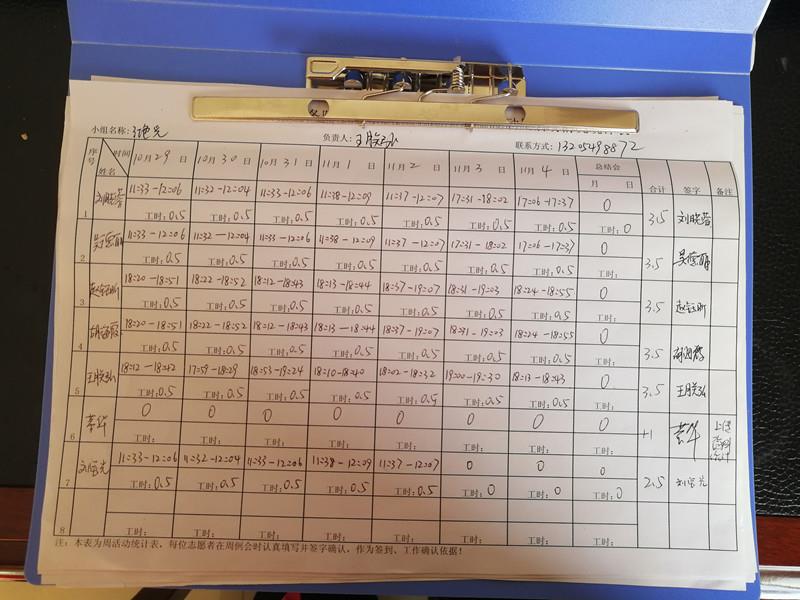 小组名称：
负责人：王朕弘
联系方式：13205498872
序号 时间 姓名 10月29日 10月30日 10月31日 11月1日 11月2日 11月3日 11月4日 总结会 月 日 合计 签字 备注
1 刘晓蓉 11:33-12:06 11:32-12:04 11:33-12:06 11:38-12:09 11:37-12:07 17:31-18:02 17:06-17:37 0
工时:0.5 工时:0.5 工时:0.5 工时:0.5 工时:0.5 工时:0.5 工时:0.5 工时:0 3.5 刘晓蓉
2 11:33-12:06 11:32-12:04 11:33-12:06 11:38-12:09 11:37-12:07 17:31-18:02 17:06-17:37 0
工时:0.5 工时:0.5 工时:0.5 工时:0.5 工时:0.5 工时:0.5 工时:0.5 工时: 3.5
3 18:20-18:51 18:22-18:52 18:12-18:43 18:13-18:44 18:37-19:07 18:31-19:03 18:24-18:55 0
工时:0.5 工时:0.5 工时:0.5 工时:0.5 工时:0.5 工时:0.5 工时:0.5 工时: 3.5
4 18:20-18:51 18:22-18:52 18:12-18:43 18:13-18:44 18:37-19:07 18:31-19:03 18:24-18:55 0
工时:0.5 工时:0.5 工时:0.5 工时:0.5 工时:0.5 工时:0.5 工时:0.5 工时: 3.5
5 王朕弘 18:12-18:42 17:59-18:29 18:53-19:24 18:10-18:40 18:02-18:32 19:00-19:30 18:13-18:43 0
工时:0.5 工时:0.5 工时:0.5 工时:0.5 工时:0.5 工时:0.5 工时:0.5 工时: 3.5 王朕弘
6 0 0 0 0 0 0 0 0
工时: 工时: 工时: 工时: 工时: 工时: 工时: 工时: +1
7 11:33-12:06 11:32-12:04 11:33-12:06 11:38-12:09 11:37-12:07 0 0 0
工时:0.5 工时:0.5 工时:0.5 工时:0.5 工时:0.5 工时:0 工时:0 工时:0 2.5
8 工时: 工时: 工时: 工时: 工时: 工时: 工时: 工时:
注：本表为周活动统计表，每位志愿者在周例会时认真填写并签字确认，作为签到、工作确认依据！